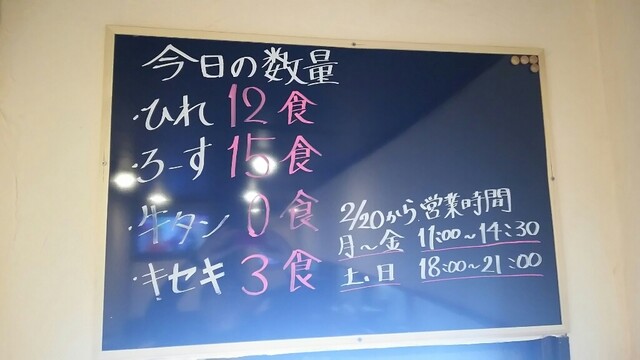 今日の数量
・ひれ 12食
・ろーす 15食
・牛タン 0食
・キセキ 3食
2/20から営業時間
月〜金 11:00〜14:30
土・日 18:00〜21:00